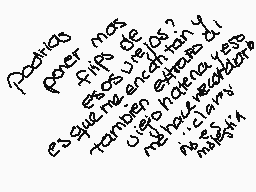 podrias
poner mas
flips de
esos viejos?
es que me encantan y
tambien extraño al
viejo hatena y eso
me hace recordarlo
:claro
no es
molestia